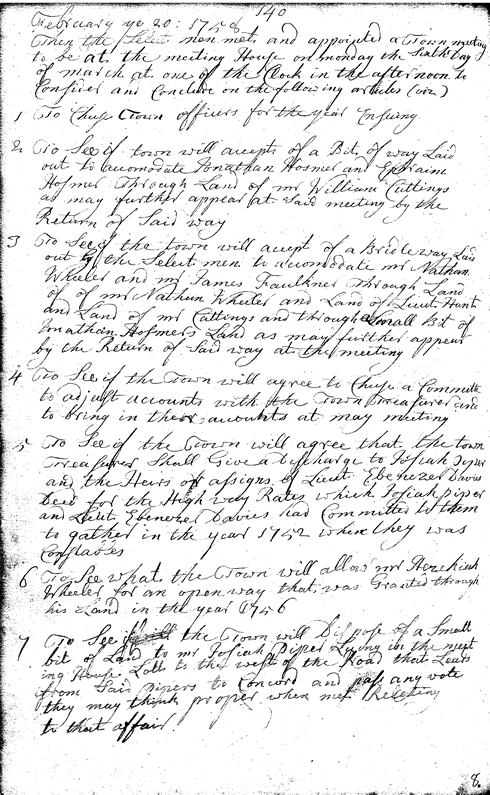 140
February ye 20: 1758
Then the Select men met and appointed a Town meeting
to be at the meeting House on monday the Sixth Day
of march at one of the Clock in the afternoon to
Consider and Conclude on the following articles (viz)
1 To Chuse Town officers for the year Ensuing
2 To See if town will accepts of a Bit of way Laid
out to acomodate Jonathan Hosmer and Ephraim
Hosmer Through Land of mr William Cuttings
as may further appear at Said meeting by the
Return of Said way
3 To See if the town will accept of a Bridle way Laid
out by the Select men to acomodate mr Nathan
Wheeler and mr James Faulkner Through Land
of of mr Nathan Wheeler and Land of Lieut Hunt
and Land of mr Cuttings and through a Small Bit of
Jonathan Hosmers Land as may further appear
by the Return of Said way at the meeting
4 To See if the Town will agree to Chuse a Committe
to adjust accounts with the Town Treasurer and
to bring in their acounts at may meeting
5 To See if the Town will agree that the town
Treasurer Shall Give a Discharge to Josiah Piper
and the Heirs or assigns of Lieut Ebenezer Davies
Decd for the High way Rates which Josiah Piper
and Lieut Ebenezer Davies had Committed to them
to gather in the year 1752 when they was
Constables
6 To See what the Town will allow mr Hezekiah
Wheeler for an open way that was Granted through
his Land in the year 1756
7 To See if the Town will Dispose of a Small
bit of Land to mr Josiah Piper Lying in the meet
ing House Lott to the west of the Road that Leads
from Said Pipers to Concord and pass any vote
they may think proper when met Releting
to that affair
8